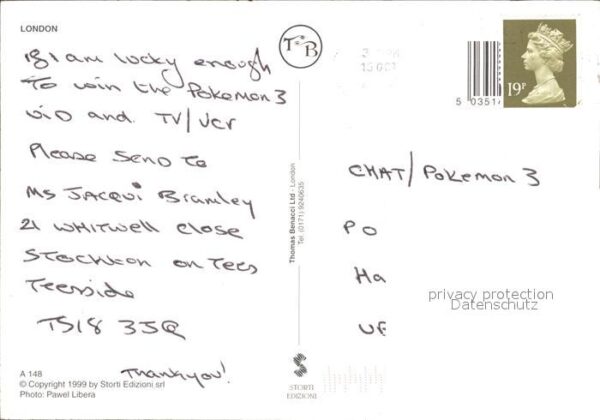 LONDON
If I am lucky enough
To win the Pokemon 3
ViD and TV/Vcr
Please Send to
Ms JACQUi Bramley
21 WHITWELL Close
STOCKTON on Tees
Teesside
TS18 3JQ
Thankyou!
A 148
© Copyright 1999 by Storti Edizioni srl
Photo: Pawel Libera
TB
Thomas Benacci Ltd - London
Tel. (0171) 9240635
STORTI
EDIZIONI
5 0351
19P
CHAT/Pokemon 3
PO
Ha
privacy protection
Datenschutz